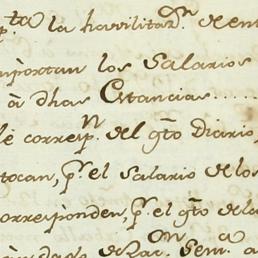 p.ta la havilitaz.on de en
mportan los Salarios
â dhas Estancias......
le corresp.n del g.to Diario,
tocan, p.r el Salario de los
orresponden, p.r el g.to de la